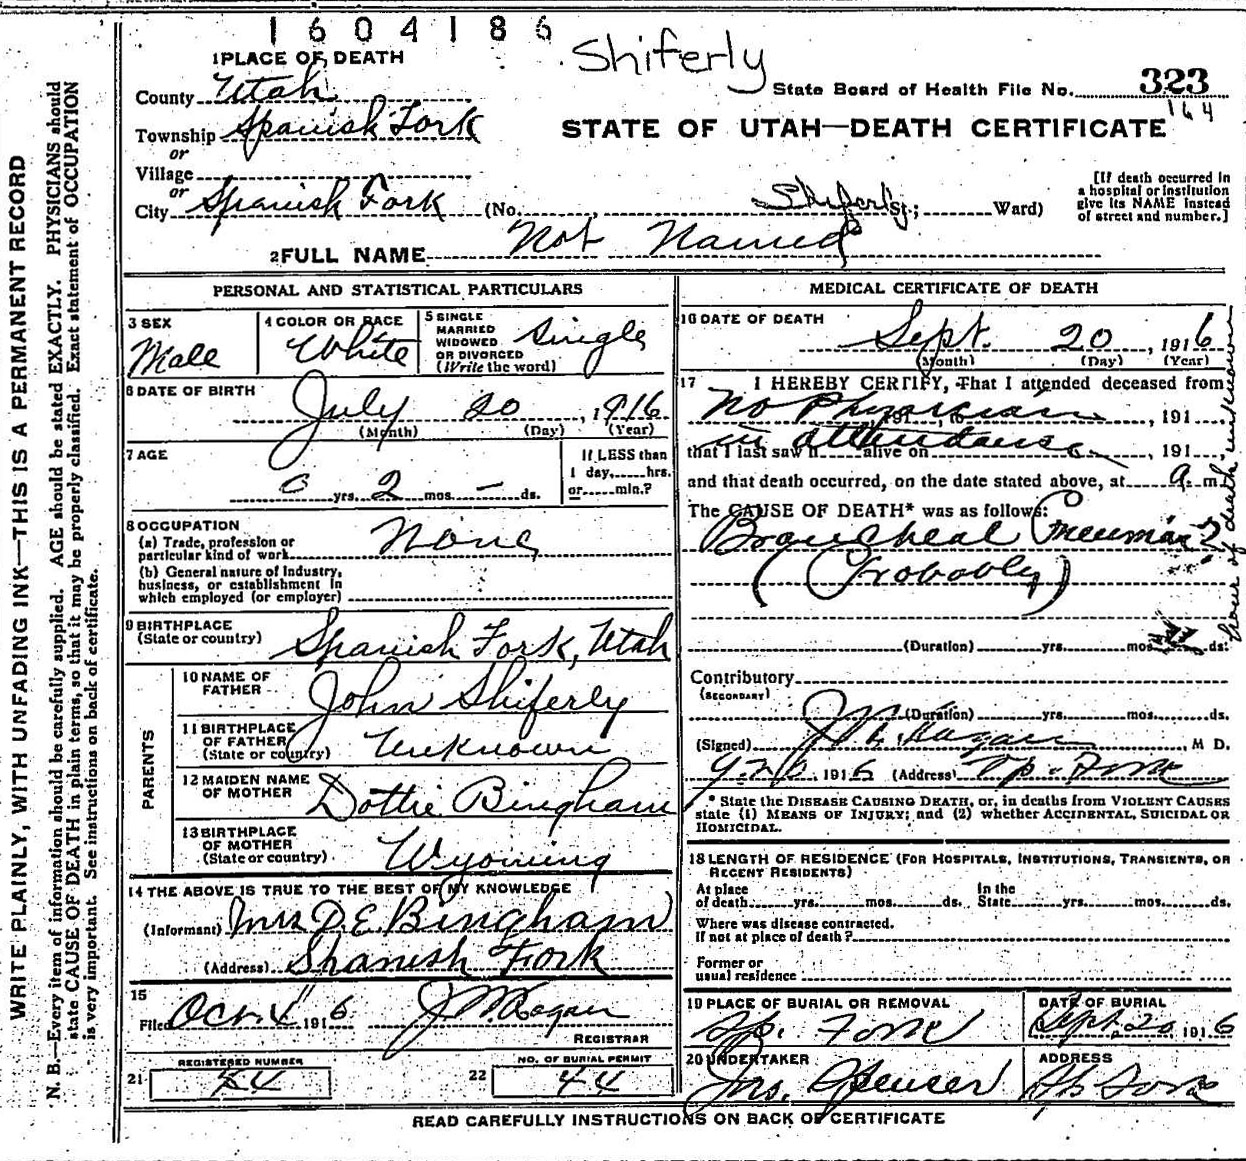 1604186
Shiferly
1 PLACE OF DEATH
County Utah
State Board of Health File No. 323
164
Township Spanish Fork
STATE OF UTAH—DEATH CERTIFICATE
or
Village
or
City Spanish Fork (No. , Shiferly St.; Ward)
[If death occurred in
a hospital or institution
give its NAME instead
of street and number.]
2 FULL NAME Not Named
PERSONAL AND STATISTICAL PARTICULARS
3 SEX
Male
4 COLOR OR RACE
White
5 SINGLE
MARRIED
WIDOWED
OR DIVORCED
(Write the word)
Single
6 DATE OF BIRTH
July 20, 1916
(Month) (Day) (Year)
7 AGE
0 yrs. 2 mos. — ds.
If LESS than
1 day, hrs.
or min.?
8 OCCUPATION
(a) Trade, profession or
particular kind of work None
(b) General nature of industry,
business, or establishment in
which employed (or employer)
9 BIRTHPLACE
(State or country) Spanish Fork, Utah
PARENTS
10 NAME OF
FATHER John Shiferly
11 BIRTHPLACE
OF FATHER
(State or country) Unknown
12 MAIDEN NAME
OF MOTHER Dottie Bingham
13 BIRTHPLACE
OF MOTHER
(State or country) Wyoming
14 THE ABOVE IS TRUE TO THE BEST OF MY KNOWLEDGE
(Informant) Mrs D. E. Bingham
(Address) Spanish Fork
15
Filed Oct 4 1916
REGISTRAR
REGISTERED NUMBER
21 44
NO. OF BURIAL PERMIT
22 44
MEDICAL CERTIFICATE OF DEATH
16 DATE OF DEATH
Sept. 20, 1916
(Month) (Day) (Year)
17 I HEREBY CERTIFY, That I attended deceased from
No Physician 191 , to , 191
in attendance
that I last saw h alive on , 191 ,
and that death occurred, on the date stated above, at a. m.
hour of death unknown
The CAUSE OF DEATH* was as follows:
Broncheal Pneumonia?
(Probably)
(Duration) yrs. mos. ds.
Contributory
(SECONDARY)
(Duration) yrs. mos. ds.
(Signed) , M D.
1916 (Address) Sp. Fork
* State the DISEASE CAUSING DEATH, or, in deaths from VIOLENT CAUSES
state (1) MEANS OF INJURY; and (2) whether ACCIDENTAL, SUICIDAL OR
HOMICIDAL.
18 LENGTH OF RESIDENCE (FOR HOSPITALS, INSTITUTIONS, TRANSIENTS, OR
RECENT RESIDENTS)
At place
of death yrs. mos. ds.
In the
State yrs. mos. ds.
Where was disease contracted.
If not at place of death?
Former or
usual residence
19 PLACE OF BURIAL OR REMOVAL
Sp. Fork
DATE OF BURIAL
Sept. 20, 1916
20 UNDERTAKER
Jno. Spencer
ADDRESS
Sp Fork
READ CAREFULLY INSTRUCTIONS ON BACK OF CERTIFICATE
WRITE PLAINLY, WITH UNFADING INK—THIS IS A PERMANENT RECORD
N. B.—Every item of information should be carefully supplied. AGE should be stated EXACTLY. PHYSICIANS should
state CAUSE OF DEATH in plain terms, so that it may be properly classified. Exact statement of OCCUPATION
is very important. See instructions on back of certificate.